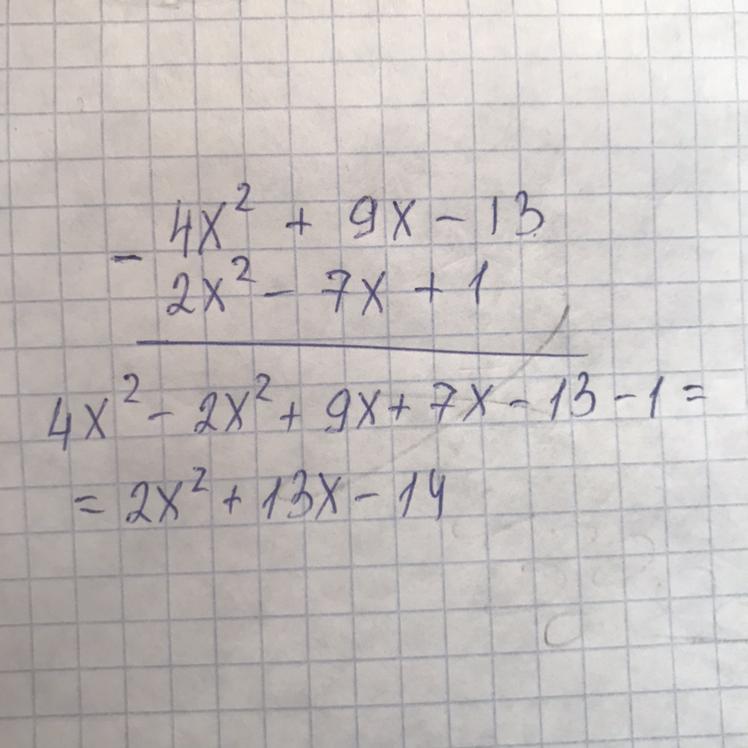 4x² + 9x - 13
-
2x² - 7x + 1
4x² - 2x² + 9x + 7x - 13 - 1 =
= 2x² + 13x - 14